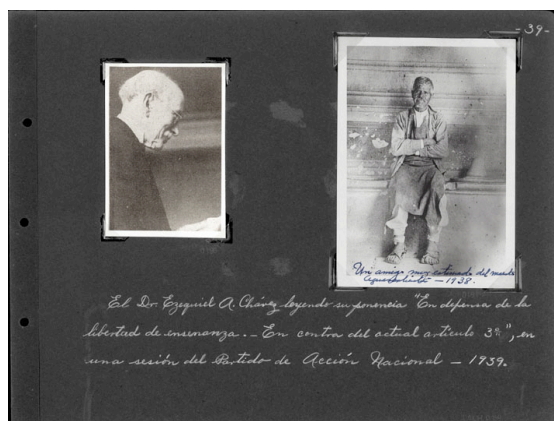 -39-
Un amigo muy estimado del
— 1938.
El Dr. Ezequiel A. Chávez leyendo su ponencia "En defensa de la
libertad de enseñanza.- En contra del actual artículo 3º", en
una sesión del Partido de Acción Nacional - 1939.